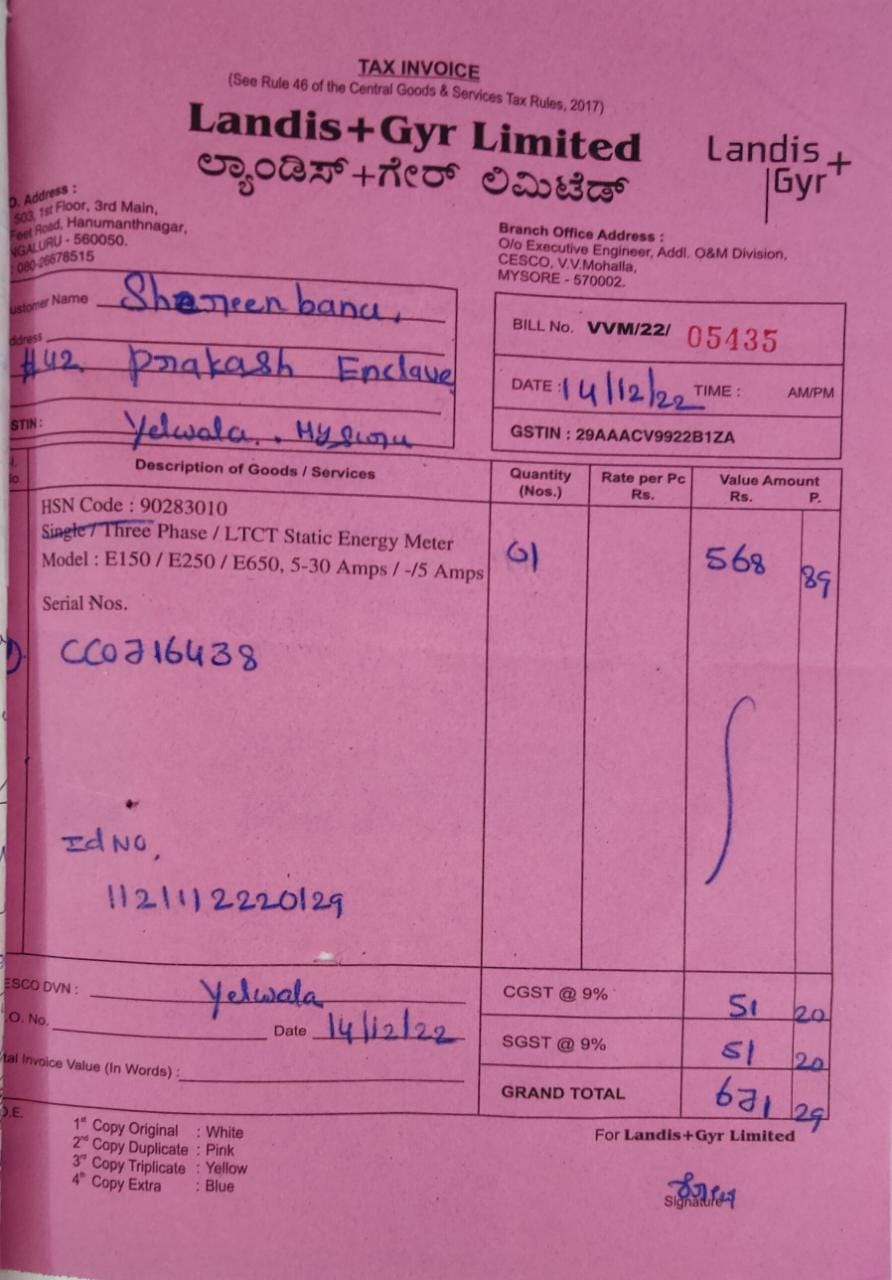 TAX INVOICE
(See Rule 46 of the Central Goods & Services Tax Rules, 2017)
Landis+Gyr Limited
ಲ್ಯಾಂಡಿಸ್+ಗೇರ್ ಲಿಮಿಟೆಡ್
Landis+
Gyr
O. Address :
503, 1st Floor, 3rd Main,
Feet Road, Hanumanthnagar,
NGALURU - 560050.
: 080-26678515
Branch Office Address :
O/o Executive Engineer, Addl. O&M Division,
CESCO, V.V.Mohalla,
MYSORE - 570002.
ustomer Name Shameen banu,
ddress
#42 Prakash Enclave
STIN : Yelwala.. Mysuru
BILL No. VVM/22/ 05435
DATE : 14/12/22 TIME : AM/PM
GSTIN : 29AAACV9922B1ZA
l. Description of Goods / Services Quantity Rate per Pc Value Amount
o. (Nos.) Rs. Rs. P.
HSN Code : 90283010
Single / Three Phase / LTCT Static Energy Meter
Model : E150 / E250 / E650, 5-30 Amps / -/5 Amps 01 568 89
Serial Nos.
1) CC0716438
Id NO,
1121112220129
ESCO DVN : Yelwala
.O. No. Date 14/12/22
tal Invoice Value (In Words) :
CGST @ 9% 51 20
SGST @ 9% 51 20
GRAND TOTAL 671 29
O.E.
1st Copy Original : White
2nd Copy Duplicate : Pink
3rd Copy Triplicate : Yellow
4th Copy Extra : Blue
For Landis+Gyr Limited
Signature